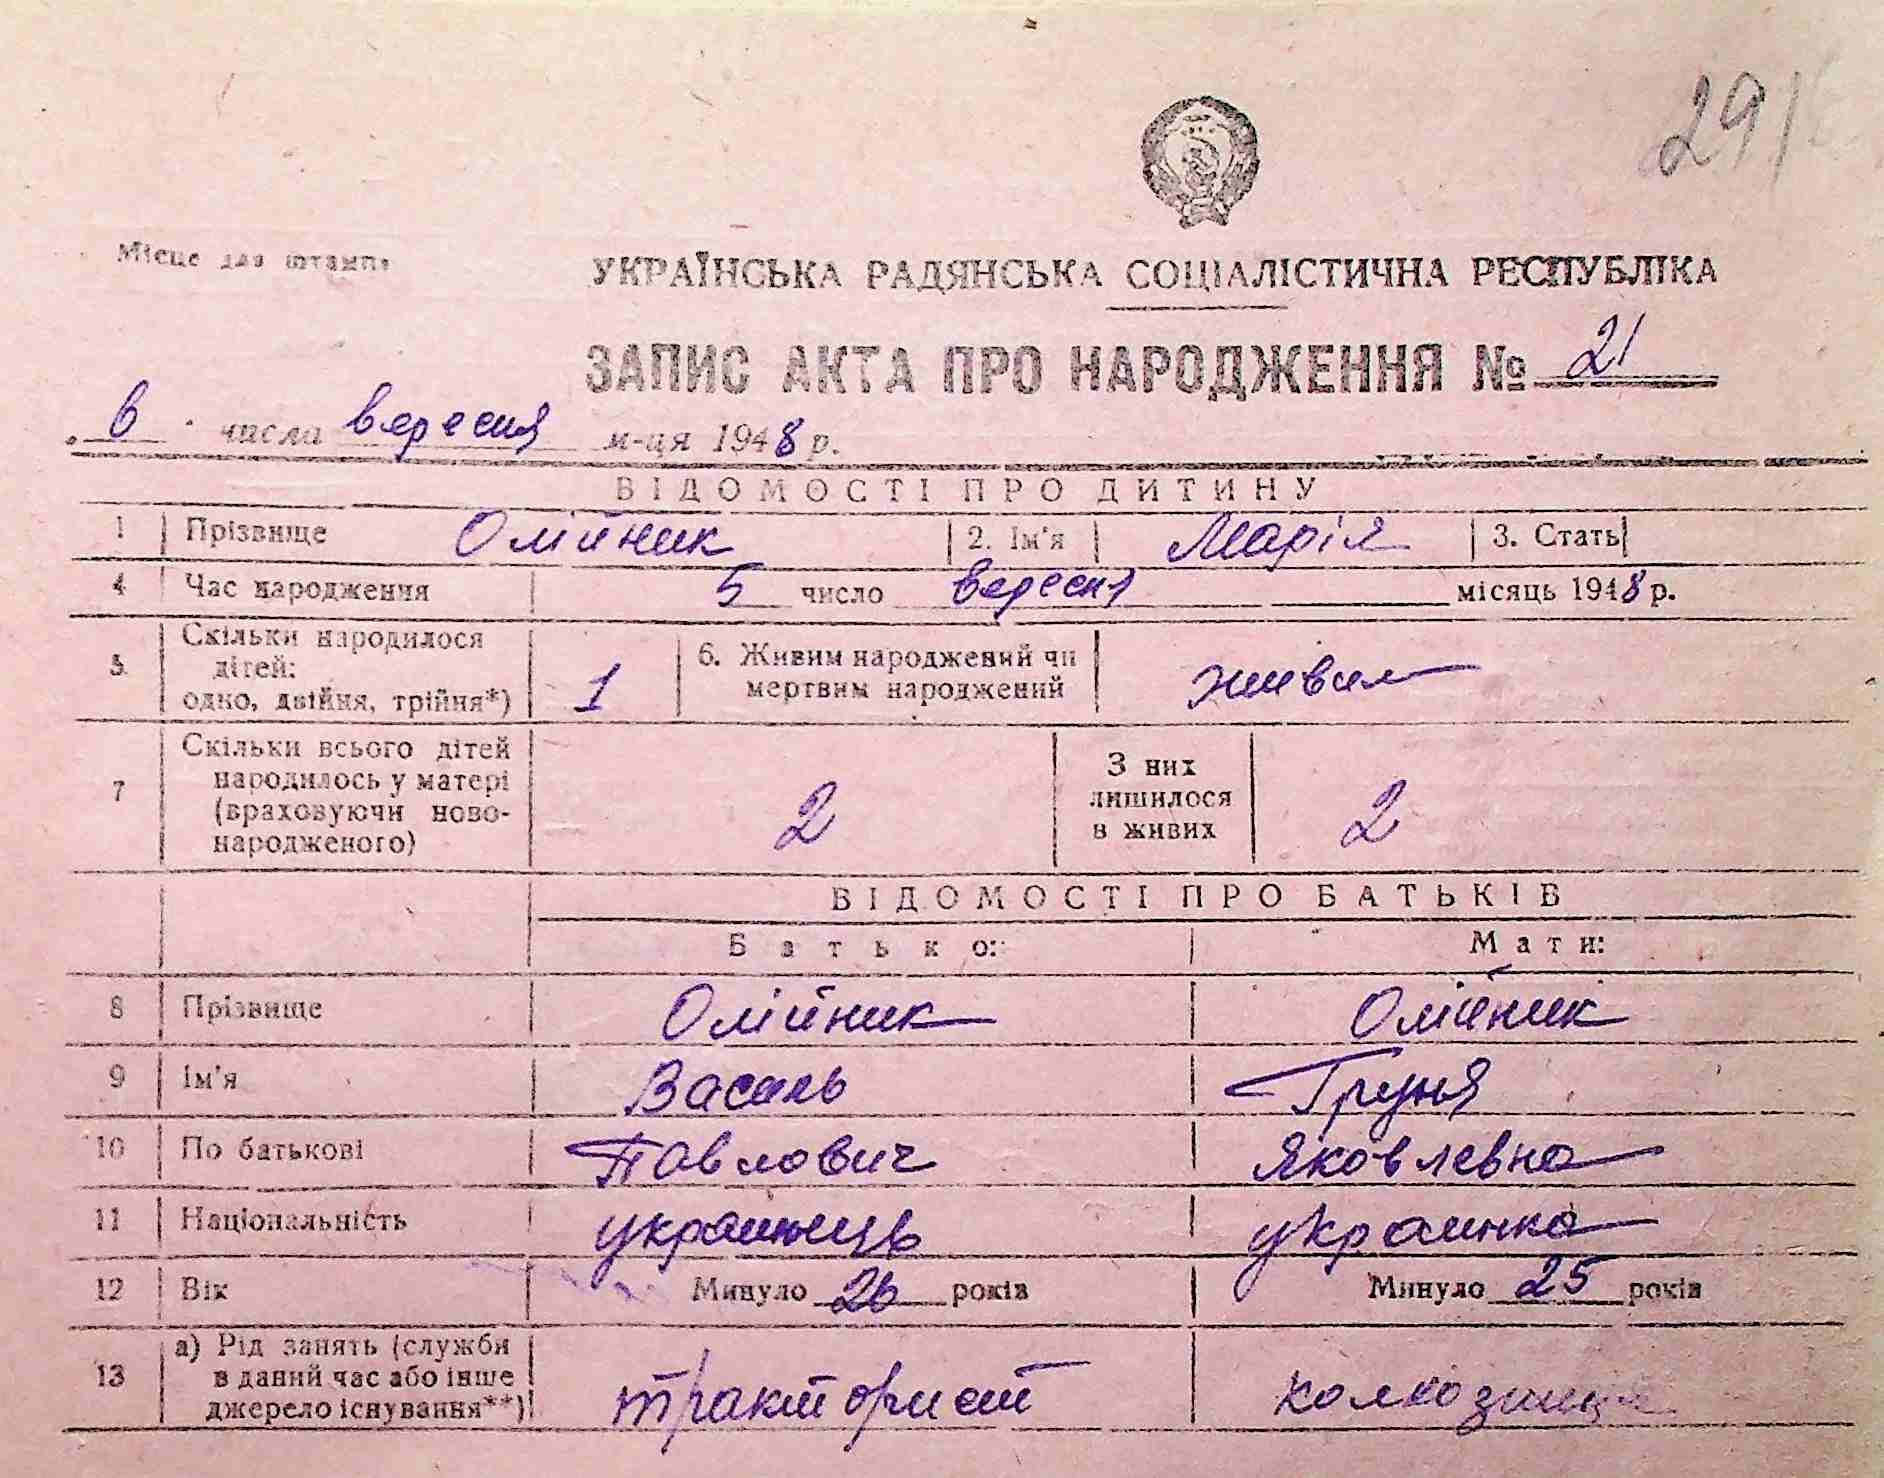 291
Місце для штампа
УКРАЇНСЬКА РАДЯНСЬКА СОЦІАЛІСТИЧНА РЕСПУБЛІКА
ЗАПИС АКТА ПРО НАРОДЖЕННЯ № 21
6 числа вересня м-ця 1948 р.
ВІДОМОСТІ ПРО ДИТИНУ
1 Прізвище Олійник 2. Ім'я Марія 3. Стать
4 Час народження 5 число вересня місяць 1948 р.
5 Скільки народилося дітей: одно, двійня, трійня*) 1 6. Живим народжений чи мертвим народжений живим
7 Скільки всього дітей народилось у матері (враховуючи новонародженого) 2 З них лишилося в живих 2
ВІДОМОСТІ ПРО БАТЬКІВ
Батько: Мати:
8 Прізвище Олійник Олійник
9 Ім'я Василь Груня
10 По батькові Павлович Яковлевна
11 Національність украинець украинка
12 Вік Минуло 26 років Минуло 25 років
13 а) Рід занять (служби в даний час або інше джерело існування**) тракторист колхозниця